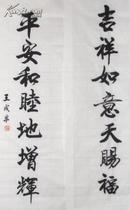 吉祥如意天賜福
平安和睦地增輝